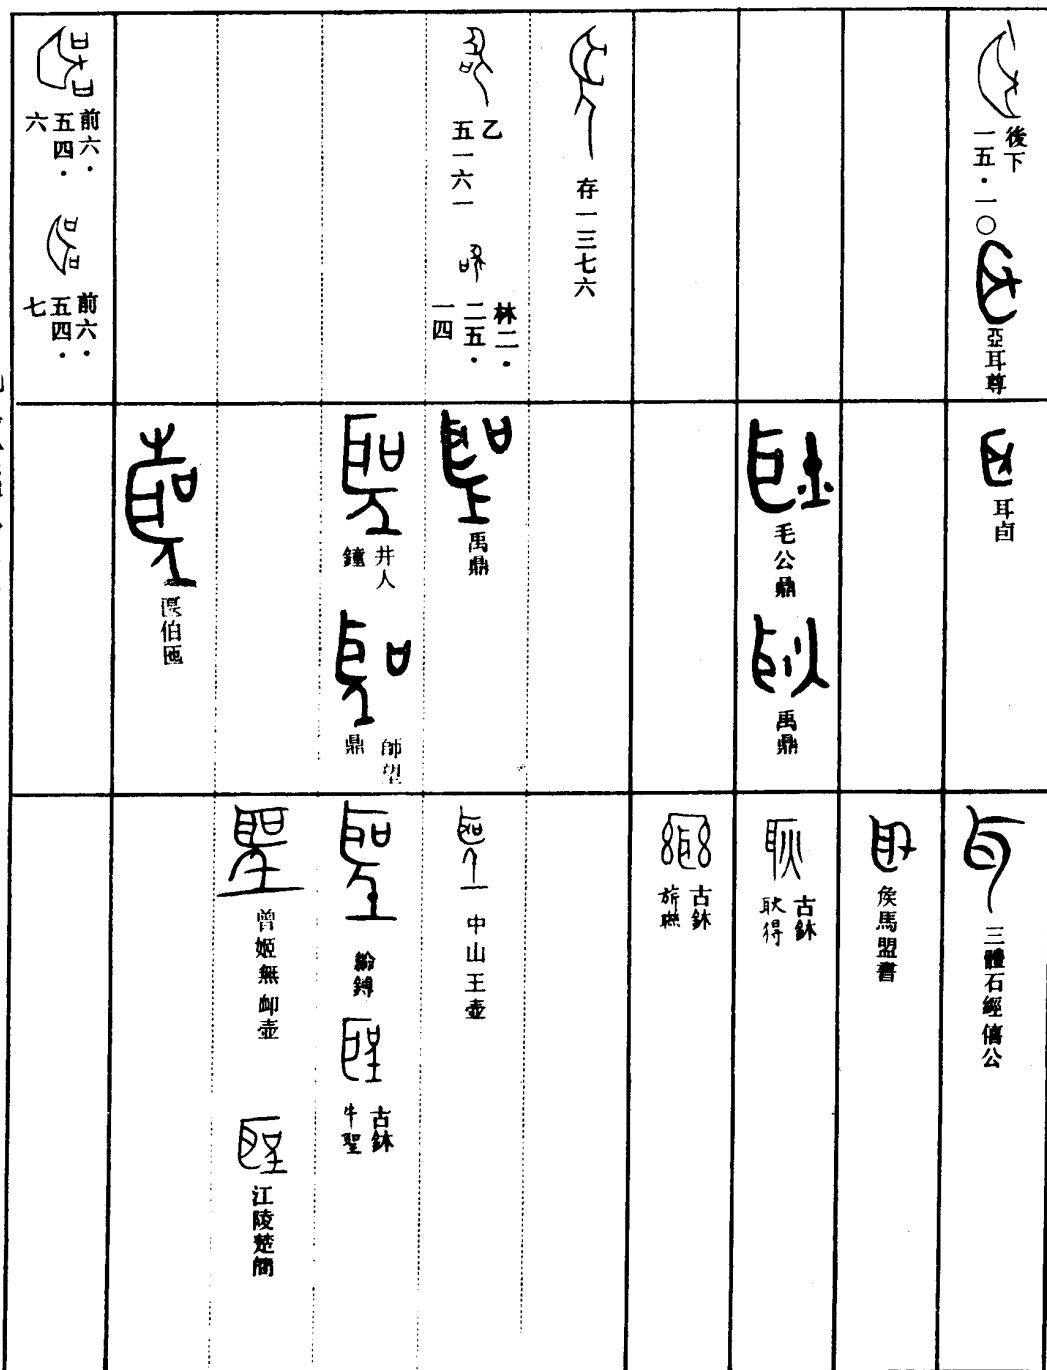 後下
一五·一〇
亞耳尊
存一三七六
乙
五一六一
林二·
二五·
一四
前六·
五四·
六
前六·
五四·
七
耳卣
毛公鼎
禹鼎
禹鼎
井人
鐘
師望
鼎
伯匜
三體石經僖公
侯馬盟書
古鉢
耿得
古鉢
中山王壺
鎛
古鉢
牛聖
曾姬無卹壺
江陵楚簡